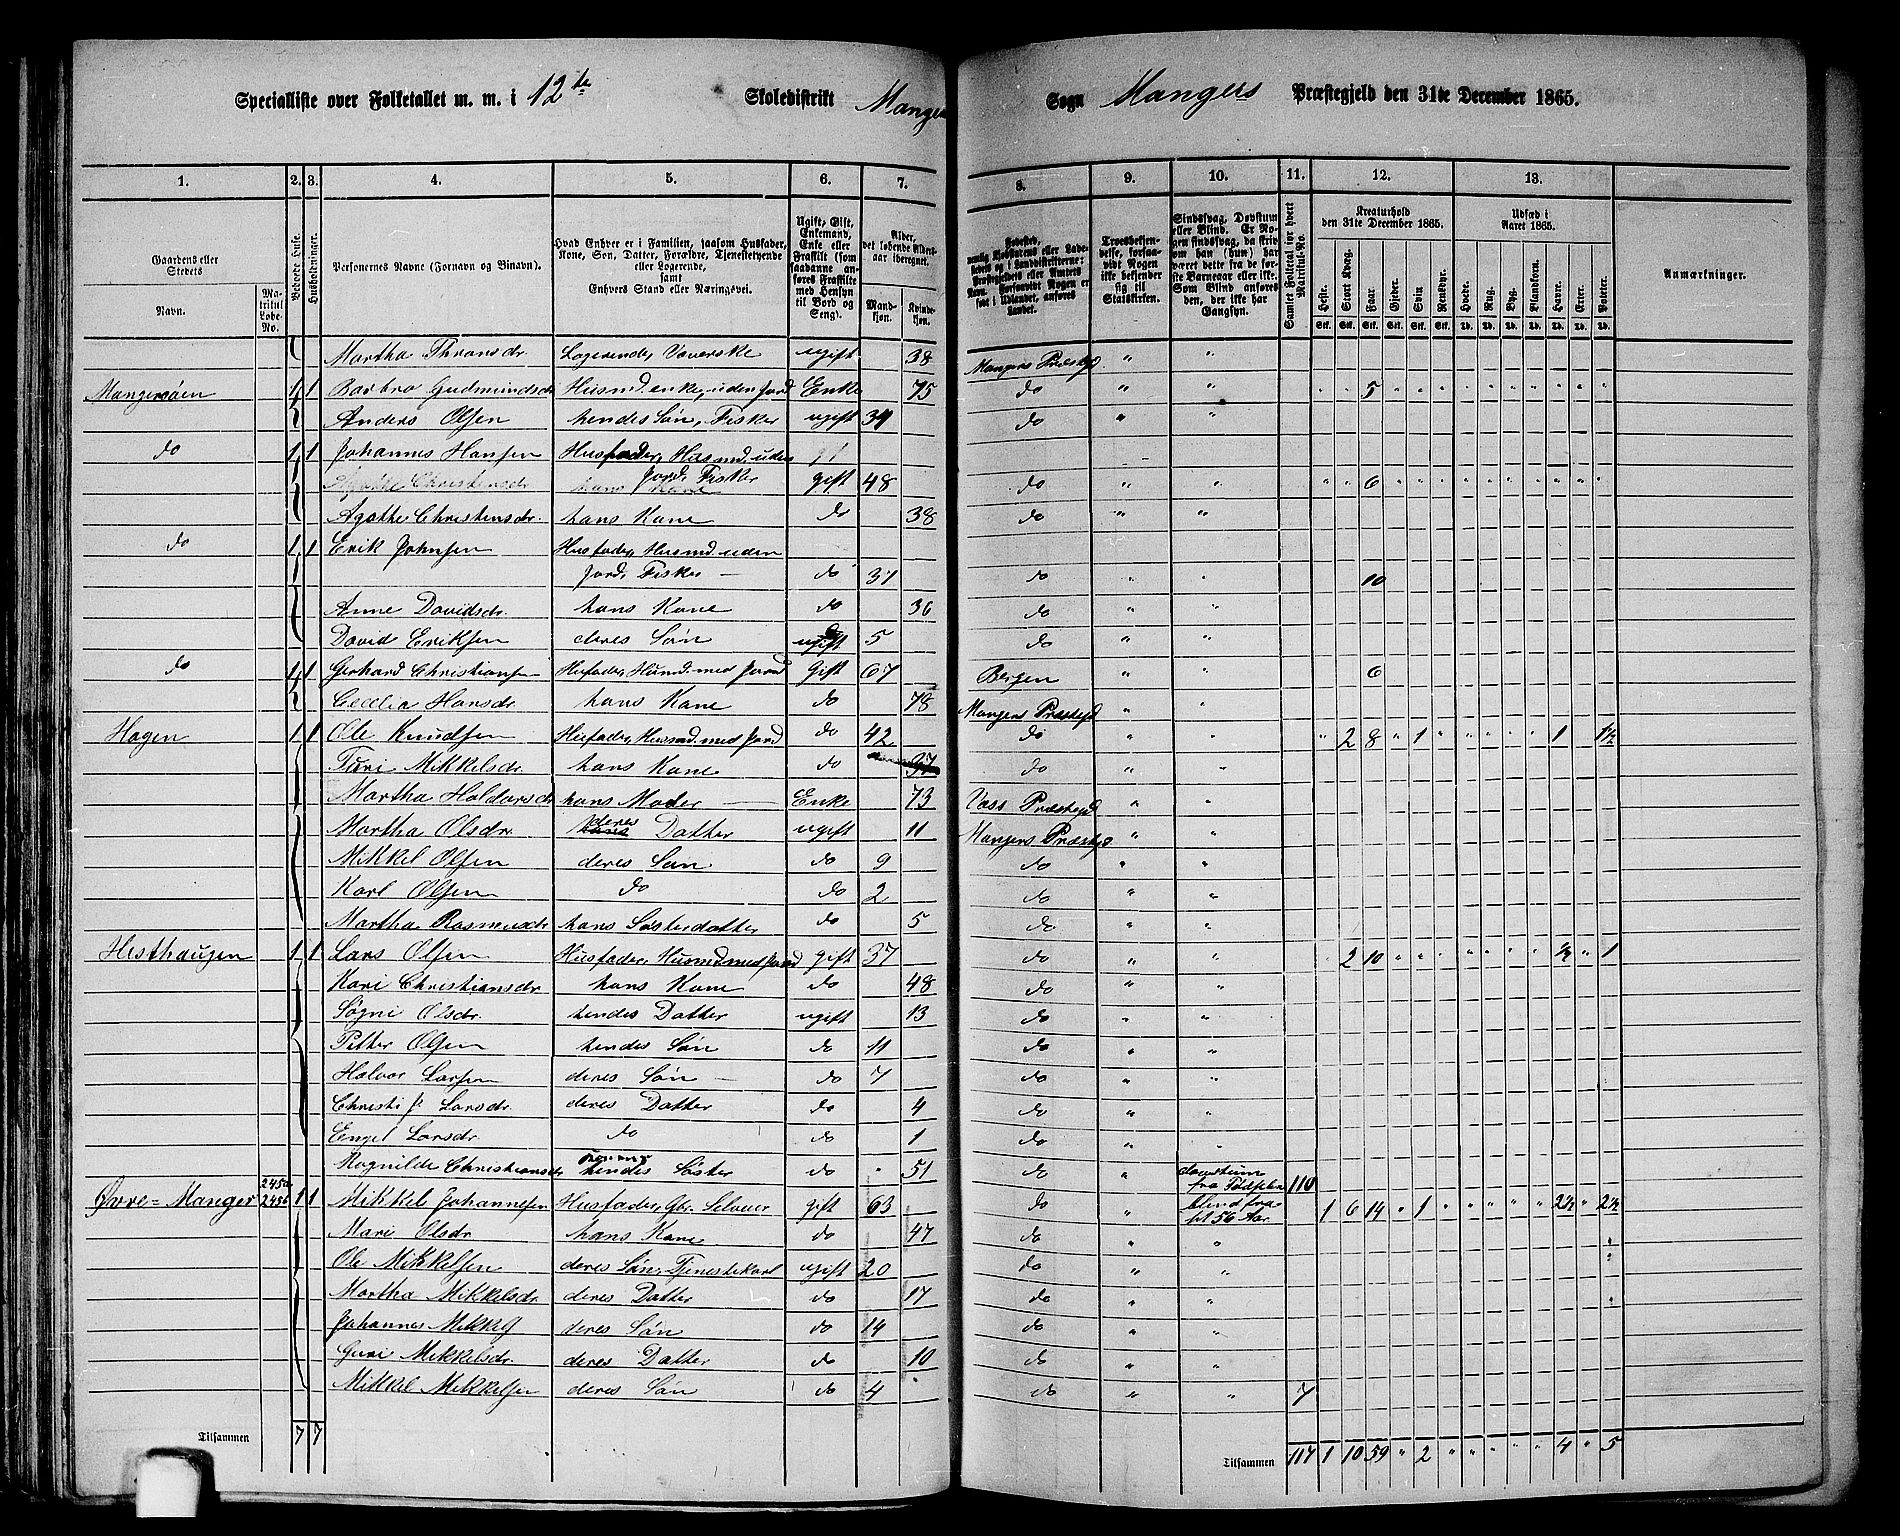 Specialliste over Folketallet m. m. i 12te Skoledistrikt Manger Sogn Mangers Præstegjeld den 31te December 1865.
1. 2. 3. 4. 5. 6. 7. 8. 9. 10. 11. 12. 13.
Gaardens eller Stedets
Navn. Matrikul Løbe-No.
Beboede Huse.
Husholdninger.
Personernes Navne (Fornavn og Binavn).
Hvad Enhver er i Familien, saasom Husfader, Kone, Søn, Datter, Forældre, Tjenestetyende eller Logerende, samt Enhvers Stand eller Næringsvei.
Ugift, Gift, Enkemand, Enke eller Fraskilt (som saadanne anføres Fraskilte med Hensyn til Bord og Seng).
Alder, det løbende Aldersaar iberegnet.
Mandkjøn. Kvindekjøn.
Fødested,
Troesbekjendelse, forsaavidt Nogen ikke bekjender sig til Statskirken.
Sindssvag, Døvstum eller Blind. Er Nogen sindssvag, da skrives om han (hun) har været dette fra de første Barneaar eller ikke. Som Blind anføres den, der ikke har Gangsyn.
Samlet Folketal for hvert Matrikul-No.
Kreaturhold den 31te December 1865.
Udsæd i Aaret 1865.
Anmærkninger.
Heste. Stort Kvæg. Faar. Gjeder. Svin. Rensdyr. Hvede. Rug. Byg. Blandkorn. Havre. Erter. Poteter.
Stk. Stk. Stk. Stk. Stk. Stk. Td. Td. Td. Td. Td. Td. Td.
Martha Thronsdr. Logerende, Væverske ugift 38 Mangers Præstegjd " "
Mangersøen 1 1 Barbro Gudmundsdr Husmd.enke, uden Jord Enke 75 do " " 5
Anders Olsen hendes Søn, Fisker ugift 34 do " "
do 1 1 Johannes Hansen Husfader, Husmd. uden
Jord, Fisker gift 48 do " " 6
Agathe Christensdr. hans Kone do 38 do " "
do 1 1 Erik Johnsen Husfader, Husmd. uden
Jord, Fisker — do 37 do " " 10
Anne Davidsdr. hans Kone do 36 do " "
David Eriksen deres Søn ugift 5 do " "
do 1 1 Gerhard Christiansen Husfader, Husmd. med Jord Gift 67 Bergen " " 6
Cecilia Hansdr. hans Kone do 78 Mangers Præstegjd " "
Hagen 1 1 Ole Knudsen Husfader, Husmd. med Jord do 42 do " " " 2 8 " 1 " " " " " 1 " 1½
Turi Mikkelsdr. hans Kone do 37 do " "
Martha Haldorsdr hans Moder — Enke 73 Voss Præstegjd " "
Martha Olsdr. deres Datter ugift 11 Mangers Præstegjd " "
Mikkel Olsen deres Søn do 9 do " "
Karl Olsen do do 2 do " "
Martha Rasmusdr hans Søsterdatter do 5 do " "
Histhaugen 1 1 Lars Olsen Husfader, Husmd med Jord gift 37 do " " 2 10 " " " " " " " ½ " 1
Kari Christiansdr. hans Kone do 48 do " "
Søgni Olsdr. hendes Datter ugift 13 do " "
Petter Olsen hendes Søn do 11 do " "
Halvor Larsen deres Søn — do 7 do " "
Christi J. Larsdr. deres Datter do 4 do " "
Engel Larsdr. do do 1 do " "
Ragnilde Christiansdr hendes Søster do " 51 do " døvstum fra Fødselen 110
Øvre=Manger 245a 245b 1 1 Mikkel Johannesen Husfader, Gbr. Selveier gift 63 do " blind fra sit 56 Aar. 1 6 14 " 1 " " " " " 2½ " 2½
Mari Olsdr. hans Kone do 47 do " "
Ole Mikkelsen deres Søn, Tjenestekarl ugift 20 do " "
Martha Mikkelsdr. deres Datter do 17 do " "
Johannes Mikkels. deres Søn do 14 do " "
Guri Mikkelsdr. deres Datter do 10 do " "
Mikkel Mikkelsen deres Søn do 4 do " " 7
Tilsammen 7 7 Tilsammen 117 1 10 59 " 2 " " " " " 4 " 5